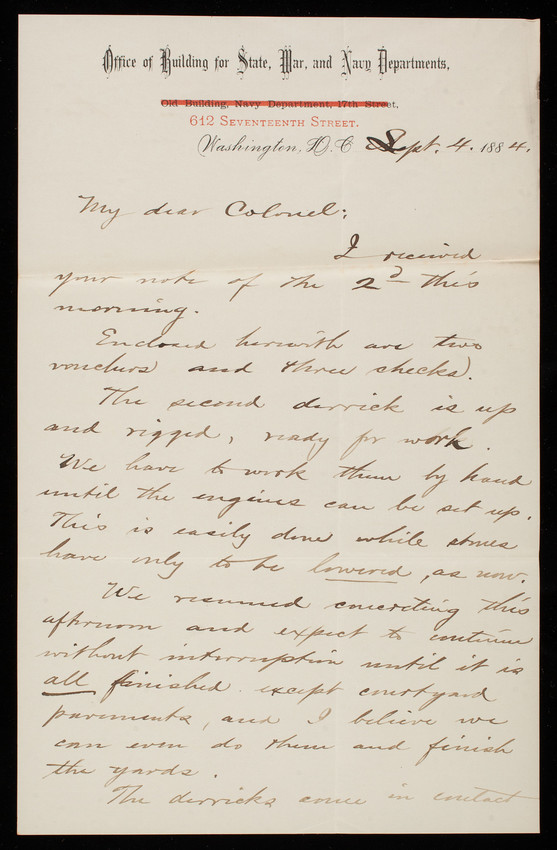 Office of Building for State, War, and Navy Departments,
Old Building, Navy Department, 17th Street,
612 Seventeenth Street.
Washington, D.C. Sept. 4. 1884.
My dear Colonel:
I received
your note of the 2d this
morning.
Enclosed herewith are two
vouchers and three checks.
The second derrick is up
and rigged, ready for work.
We have to work them by hand
until the engines can be set up.
This is easily done while stones
have only to be lowered, as now.
We resumed concreting this
afternoon and expect to continue
without interruption until it is
all finished except courtyard
pavements, and I believe we
can even do them and finish
the yards.
The derricks come in contact